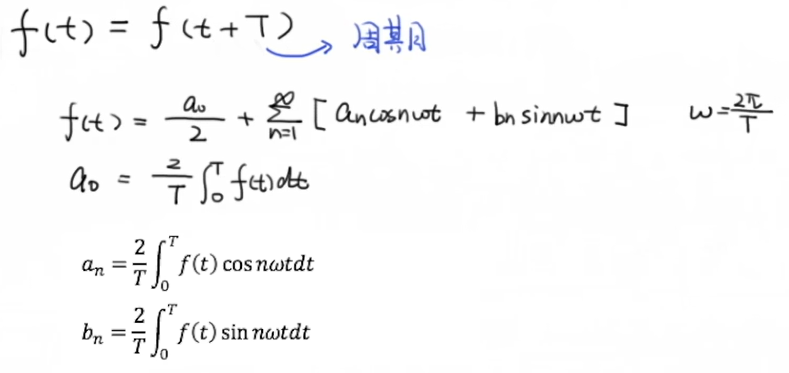 f(t) = f(t+T) → 周期
f(t) = a₀/2 + ∑_{n=1}^{∞} [ aₙcosnωt + bₙsinnωt ] ω=2π/T
a₀ = 2/T ∫₀ᵀ f(t)dt
aₙ = 2/T ∫₀ᵀ f(t) cos nωtdt
bₙ = 2/T ∫₀ᵀ f(t) sin nωtdt